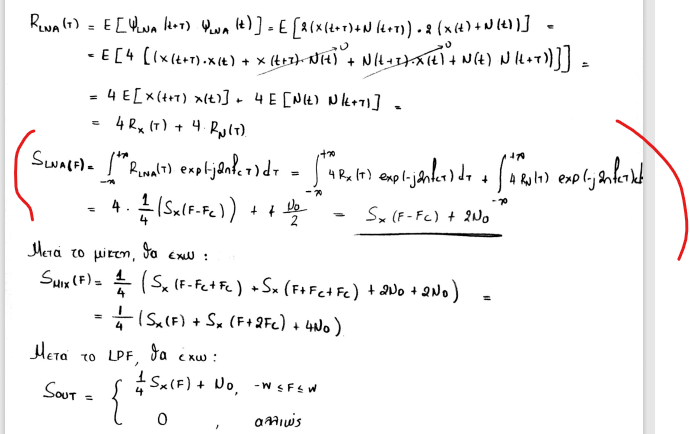 R_LNA(τ) = E[Ψ_LNA(t+τ) Ψ_LNA(t)] = E[2(x(t+τ)+N(t+τ)) · 2(x(t)+N(t))] =
= E[4[(x(t+τ)·x(t) + x(t+τ)·N(t) 0 + N(t+τ)·x(t) 0 + N(t) N(t+τ))]] =
= 4 E[x(t+τ) x(t)] + 4 E[N(t) N(t+τ)] =
= 4 R_x(τ) + 4·R_N(τ)
S_LNA(F) = ∫_{-∞}^{+∞} R_LNA(τ) exp(-j2πf_cτ) dτ = ∫_{-∞}^{+∞} 4 R_x(τ) exp(-j2πf_cτ) dτ + ∫_{-∞}^{+∞} 4 R_N(τ) exp(-j2πf_cτ) dτ
= 4 · 1/4 (S_x(F-F_c)) + 4 N_0/2 = S_x(F-F_c) + 2N_0
Μετά το μίκτη, θα έχω :
S_MIX(F) = 1/4 (S_x(F-F_c+F_c) + S_x(F+F_c+F_c) + 2N_0 + 2N_0) =
= 1/4 (S_x(F) + S_x(F+2F_c) + 4N_0)
Μετά το LPF, θα έχω :
S_OUT = { 1/4 S_x(F) + N_0, -W ≤ F ≤ W
0 , αλλιώς